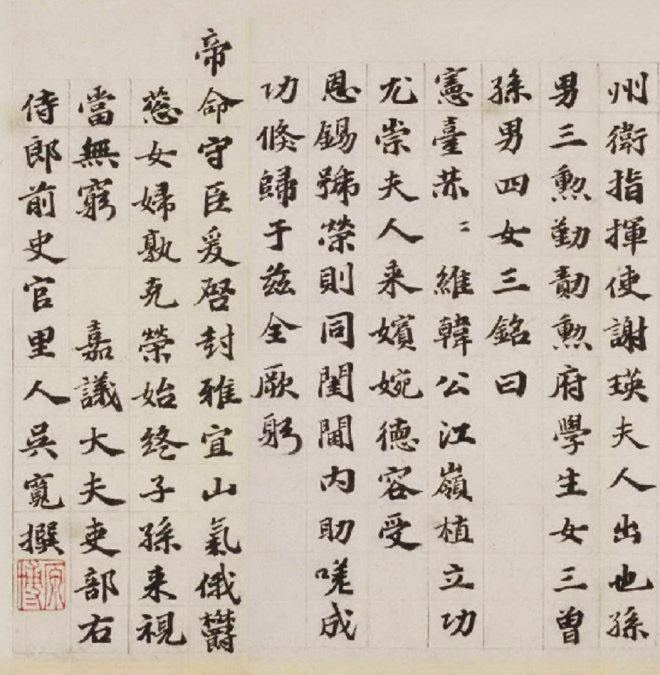 州衛指揮使謝瑛夫人出也孫
男三勲勤勣勲府學生女三曽
孫男四女三銘曰
憲臺㳟〻維韓公江嶺植立功
尤崇夫人来嬪婉德容受
恩錫號榮則同閨閫内助嗟成
功倏歸于兹全厥躬
帝命守臣爰啓封雅宜山氣俄鬱
葱女婦孰克榮始終子孫来視
當無窮 嘉議大夫吏部右
侍郎前史官里人吳寬撰
原博